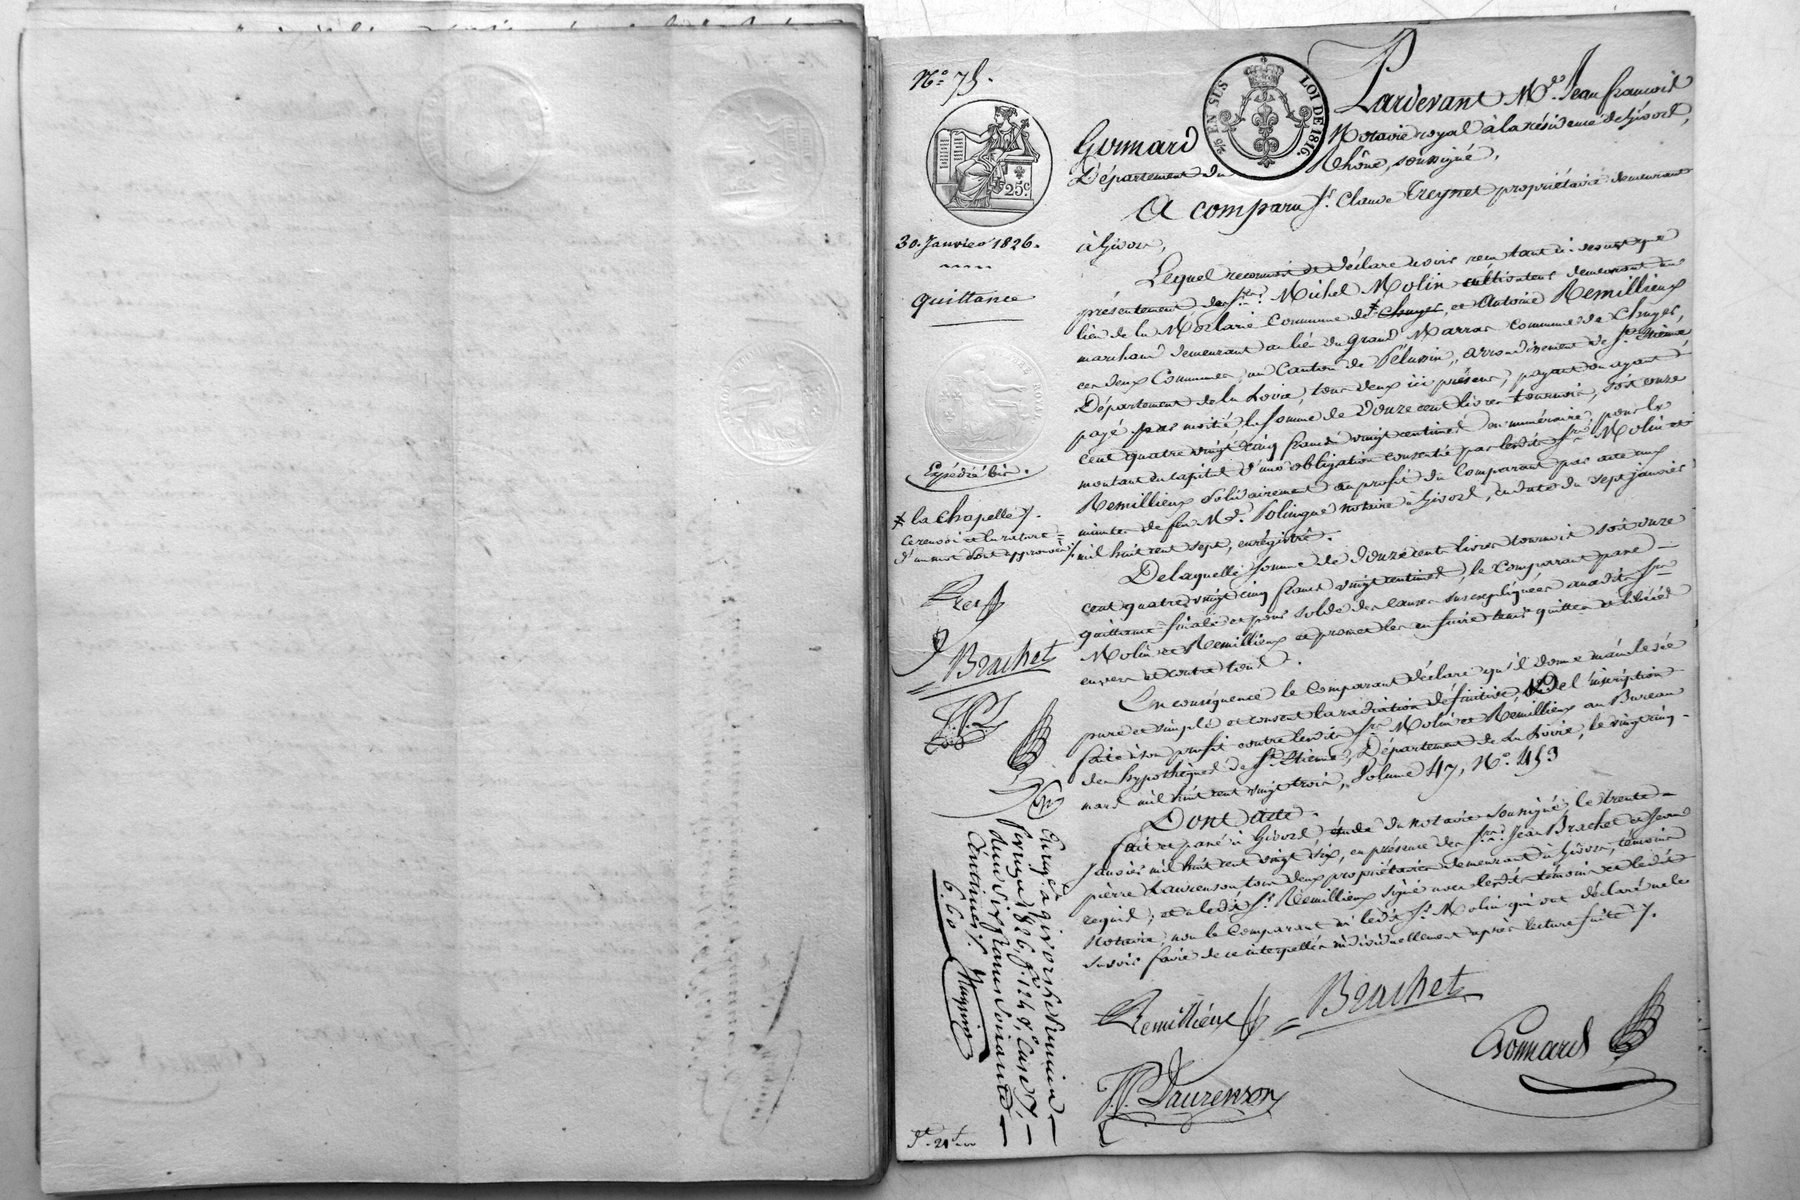 N.º 75.
25.c
30. Janvier 1826.
Quittance
Expédié bis.
EN SUS
LOI DE 1816.
Pardevant M.e Jean françois
Gonnard Notaire royal à la résidence de Givors,
Département du Rhône, soussigné,
A comparu S.r Claude Treynet propriétaire demeurant
à Givors,
Lequel reconnoit et déclare avoir reçu tant ci-devant que
présentement des S.rs Michel Molin cultivateur demeurant au
lieu de la commune de # Chuyer, et Antoine Remillieux
marchand demeurant au lieu du Grand Marras commune de Chuyer,
ces deux Communes, au Canton de Pélussin, arrondissement de S.t Etienne
Département de la Loire, tous deux ici présens, payant ou ayant
payé par moitié la somme de Douze cent livres tournois, soit onze
cent quatre vingt cinq francs vingt centimes en numéraire, pour le
montant en capital d'une obligation consentie par lesdits S.rs Molin et
Remillieux solidairement au profit du Comparant par acte aux
minutes de feu M.e notaire à Givors, en date du sept janvier
mil huit cent sept, enregistré.
# la Chapelle /.
Ce renvoi et la rature
d'un mot sont approuvés /.
Brachet
De laquelle somme de Douze cent livres tournois soit onze
cent quatre vingt cinq francs vingt centimes, le Comparant passe
quittance finale et pour solde des causes susexpliquées auxdits S.rs
Molin et Remillieux et promet les en faire tenir quittes et libérés
envers et contre tous.
En conséquence le Comparant déclare qu'il donne mainlevée
pure et simple et consent la radiation définitive de l'inscription
faite à son profit contre lesdits S.rs Molin et Remillieux au Bureau
des hypothèques de S.t Etienne, Département de la Loire, le vingt cinq
mars mil huit cent vingt trois, Volume 47, N.º 453
Dont acte.
fait et passé à Givors étude du notaire soussigné, le trente
Janvier mil huit cent vingt six, en présence des S.rs Jean Brachet et Jean
pierre Laurenson tous deux propriétaires demeurant à Givors, témoins
requis, et a ledit S.r Remillieux signé avec lesdits témoins et ledit
Notaire, non le Comparant ni ledit S.r Molin qui ont déclaré ne le
savoir faire de ce interpellés individuellement après lecture faite /.
Remillieux
Brachet
Gonnard
J.P. Laurenson
à givors le
1826, f.º 124
six francs soixante
Centimes /.
6.60